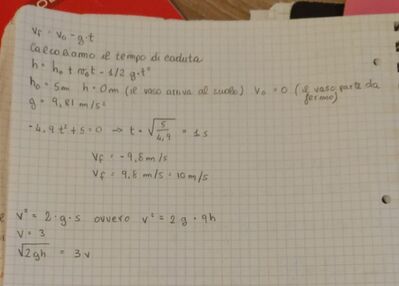 vf = v0 - g·t
Calcoliamo il tempo di caduta
h = h0 + v0t - 1/2 g·t²
h0 = 5m h = 0m (il vaso arriva al suolo) v0 = 0 (il vaso parte da fermo)
g = 9,81 m/s²
-4,9 t² + 5 = 0 → t = √5/4,9 = 1s
Vf = -9,8 m/s
Vf = 9,8 m/s = 10 m/s
v² = 2·g·s ovvero v² = 2g·9h
v = 3
√2gh = 3v